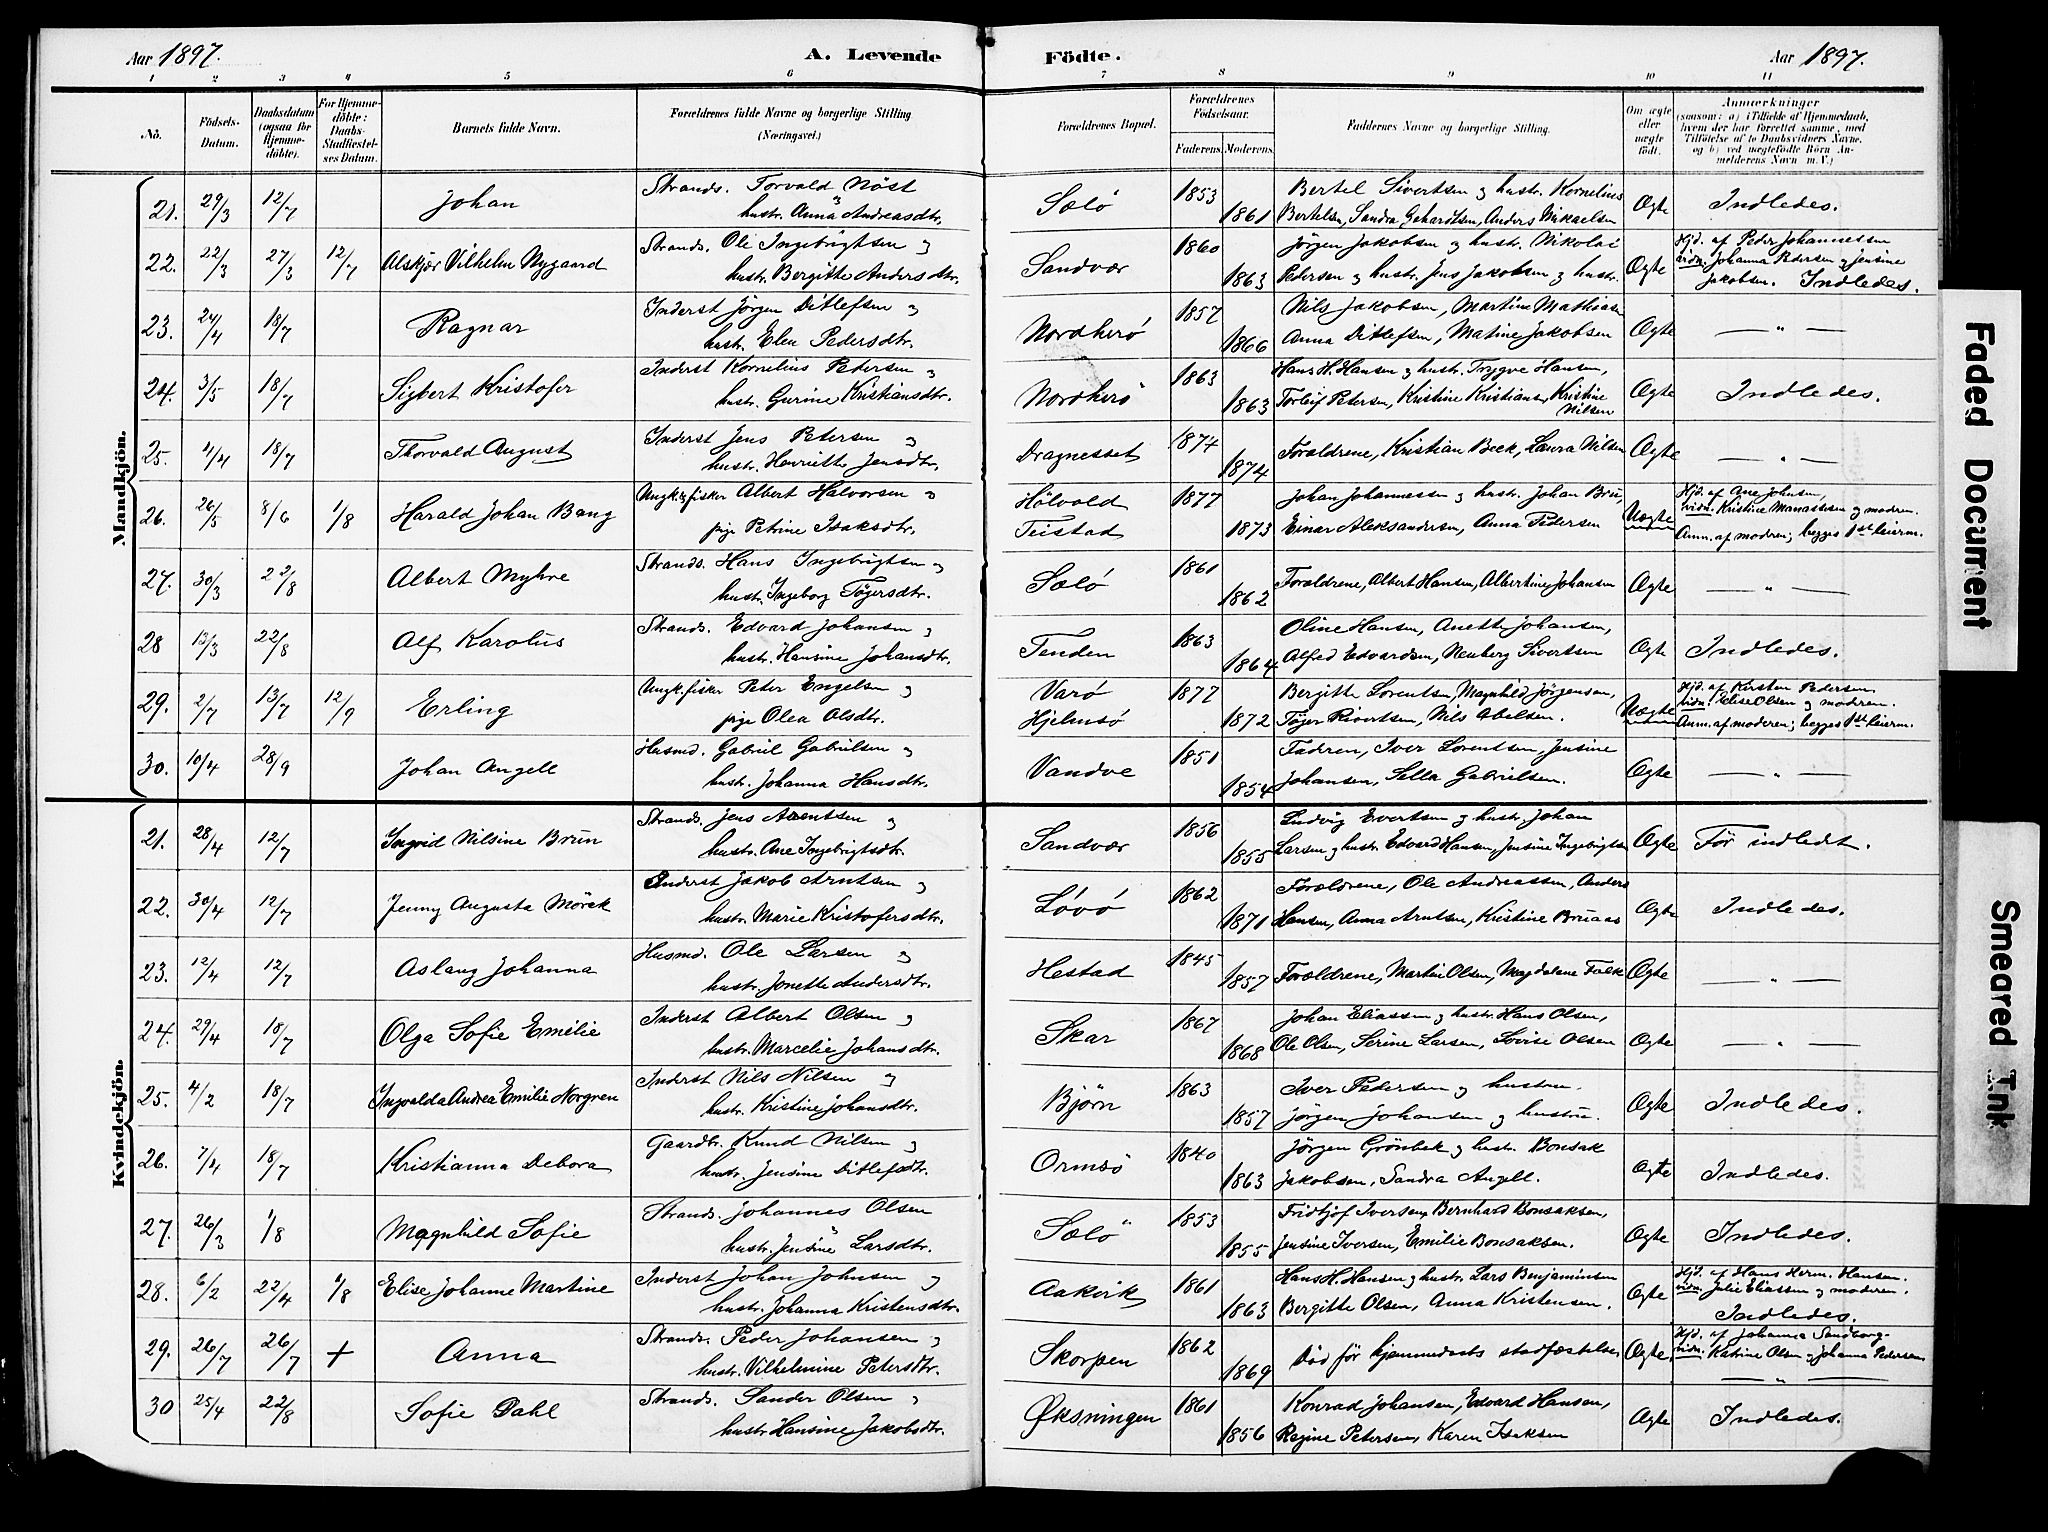 Aar 1897.
A. Levende Födte.
Aar 1897.
1 2 3 4 5 6 7 8 9 10 11
No.
Födsels-Datum.
Daabsdatum (ogsaa for Hjemmedöbte).
For Hjemmedöbte: Daabs-Stadfæstelses Datum.
Barnets fulde Navn.
Forældrenes fulde Navne og borgerlige Stilling (Næringsvei.)
Forældrenes Bopæl.
Forældrenes Födselsaar.
Faderens. Moderens.
Faddernes Navne og borgerlige Stilling.
Om ægte eller uægte födt.
Anmærkninger
(saasom: a) i Tilfælde af Hjemmedaab, hvem der har forrettet samme, med Tilföielse af to Daabsvidners Navne, og b) ved uægtefödte Börn Anmelderens Navn m. V.)
Mandkjön.
21. 29/3 12/7 Johan Strands. Torvald Nöst og Sælö 1853 Bertel Sivertsen og hustr. Kornelius Ægte Indledes.
hustr. Anna Andreasdtr. 1861 Bertelsen, Sandra Gehardtsen, Anders Mikaelsen
22. 22/3 27/3 12/7 Alskjör Vilhelm Nygaard Strands. Ole Ingebrigtsen og Sandvær 1860 Jörgen Jakobsen og hustr. Nikolai Ægte Hjd. af Peder Johannessen
hustr. Bergitte Andersdtr. 1863 Petersen og hustr. Jens Jakobsen og hustr. vidn. Johanna Pedersen og Jensine
Jakobsen. Indledes.
23. 24/4 18/7 Ragnar Inderst Jörgen Ditlefsen og Nordherö 1857 Nils Jakobsen, Martine Mathiasen Ægte — „ —
hustr. Elen Pedersdtr. 1866 Anna Ditlefsen, Matine Jakobsen
24. 3/5 18/7 Sigbert Kristofer Inderst Kornelius Petersen og Nordherö 1863 Hans H. Hansen og hustr. Trygve Hansen, Ægte Indledes.
hustr. Gurine Kristiansdtr. 1863 Torleif Petersen, Kristine Kristiansen, Kristine Nilsen
25. 4/4 18/7 Thorvald August Inderst Jens Petersen og Dragnesset 1874 Forældrene, Kristian Beck, Laura Nilsen Ægte — „ —
hustr. Henriette Jensdtr. 1874
26. 26/5 8/6 1/8 Harald Johan Bang Ungk. & fisker Albert Halvorsen og Hölvold 1877 Johan Johannessen og hustr. Johan Bru, Uægte Hjd. af Ane Johnsen,
pige Petrine Isaksdtr. Teistad 1873 Einar Aleksandersen, Anna Pedersen vidn. Kristine Manassesen og moderen.
Anm. af moderen; begges 1ste leierm.
27. 30/3 22/8 Albert Myhre Strands. Hans Ingebrigtsen og Sælö 1861 Forældrene, Albert Hansen, Albertine Johansen Ægte — „ —
hustr. Ingeborg Tögersdtr. 1862
28 13/3 22/8 Alf Karolus Strands. Edvard Johansen og Tenden 1863 Oline Hansen, Anette Johansen, Ægte Indledes.
hustr. Hansine Johansdtr. 1864 Alfred Edvardsen, Nenberg Sivertsen
29. 2/7 13/7 12/9 Erling Ungk. fisker Peter Engelsen og Varö 1877 Bergitte Lorentsen, Magnhild Jörgensen, Uægte Hjd. af Kirsten Pedersen
pige Olea Olsdtr. Hjelmsö 1872 Töger Sivertsen, Nils Abelsen. vidn. Elise Olsen og moderen.
Anm. af moderen; begges 1ste leierm.
30. 10/4 28/9 Johan Angell Husmd. Gabriel Gabrielsen og Vandve 1851 Faderen, Iver Lorentsen, Jensine Ægte — „ —
hustr. Johanna Hansdtr. 1854 Johansen, Sella Gabrielsen.
Kvindekjön.
21. 28/4 12/7 Ingrid Nilsine Brun Strands. Jens Arentsen og Sandvær 1856 Ludvig Evertsen og hustr. Johan Ægte Før indledet.
hustr. Ane Ingebrigtsdtr. 1855 Larsen og hustr. Edvard Hansen, Jensine Ingebrigtsen
22. 30/4 12/7 Jenny Augusta Mörck Inderst Jakob Arntsen og Lövö 1862 Forældrene, Ole Andreassen, Anders Ægte Indledes.
hustr. Marie Kristofersdtr. 1871 Hansen, Anna Arntsen, Kristine Bruaas
23. 12/4 12/7 Aslaug Johanna Husmd. Ole Larsen og Hestad 1845 Forældrene, Martin Olsen, Magdalene Falk Ægte — „ —
hustr. Jonette Andersdtr. 1857
24. 29/4 18/7 Olga Sofie Emilie Inderst Albert Olsen og Skar 1867 Johan Eliassen og hustr. Hans Olsen, Ægte — „ —
hustr. Marcelie Johansdtr. 1868 Ole Olsen, Serine Larsen, Lovise Olsen
25. 4/2 18/7 Ingvalda Andrea Emilie Norgren Inderst Nils Nilsen og Bjørn 1863 Iver Pedersen og hustru. Ægte Indledes.
hustr. Kristine Johansdtr. 1857 Jörgen Johansen og hustru.
26. 7/4 18/7 Kristianna Debora Gaardbr. Knud Nilsen og Ormsö 1840 Jörgen Grönbek og hustr. Bonsak Ægte Indledes.
hustr. Jensine Ditlefsdtr. 1863 Jakobsen, Sandra Angell.
27. 26/3 1/8 Magnhild Sofie Strands. Johannes Olsen Sælö 1853 Fridtjof Iversen, Bernhard Bonsaksen, Ægte Indledes.
hustr. Jensine Larsdtr. 1855 Jensine Iversen, Emilie Bonsaksen.
28. 6/2 22/4 1/8 Elise Johanne Martine Inderst Johan Johnsen og Aakvik 1861 Hans H. Hansen og hustr. Lars Benjaminsen Ægte Hjd. af Hans Herm. Hansen.
hustr. Johanna Kristensdtr. 1863 Bergitte Olsen, Anna Kristensen. vidn. Julie Eliassen og moderen.
Indledes.
29. 26/7 26/7 + Anna Strands. Peder Johansen og Skorpen 1862 Död för hjemmedaabs stadfæstelse Ægte Hjd. af Johanna Sandborg-
hustr. Vilhelmine Petersdtr. 1869 vidn. Katrine Olsen og Johanna Pedersen
— „ —
30 25/4 22/8 Sofie Dahl Strands. Sander Olsen og Øksningen 1861 Konrad Johansen, Edvard Hansen, Ægte Indledes.
hustr. Hansine Jakobsdtr. 1856 Regine Petersen, Karen Isaksen
Faded Document
Smeared Ink